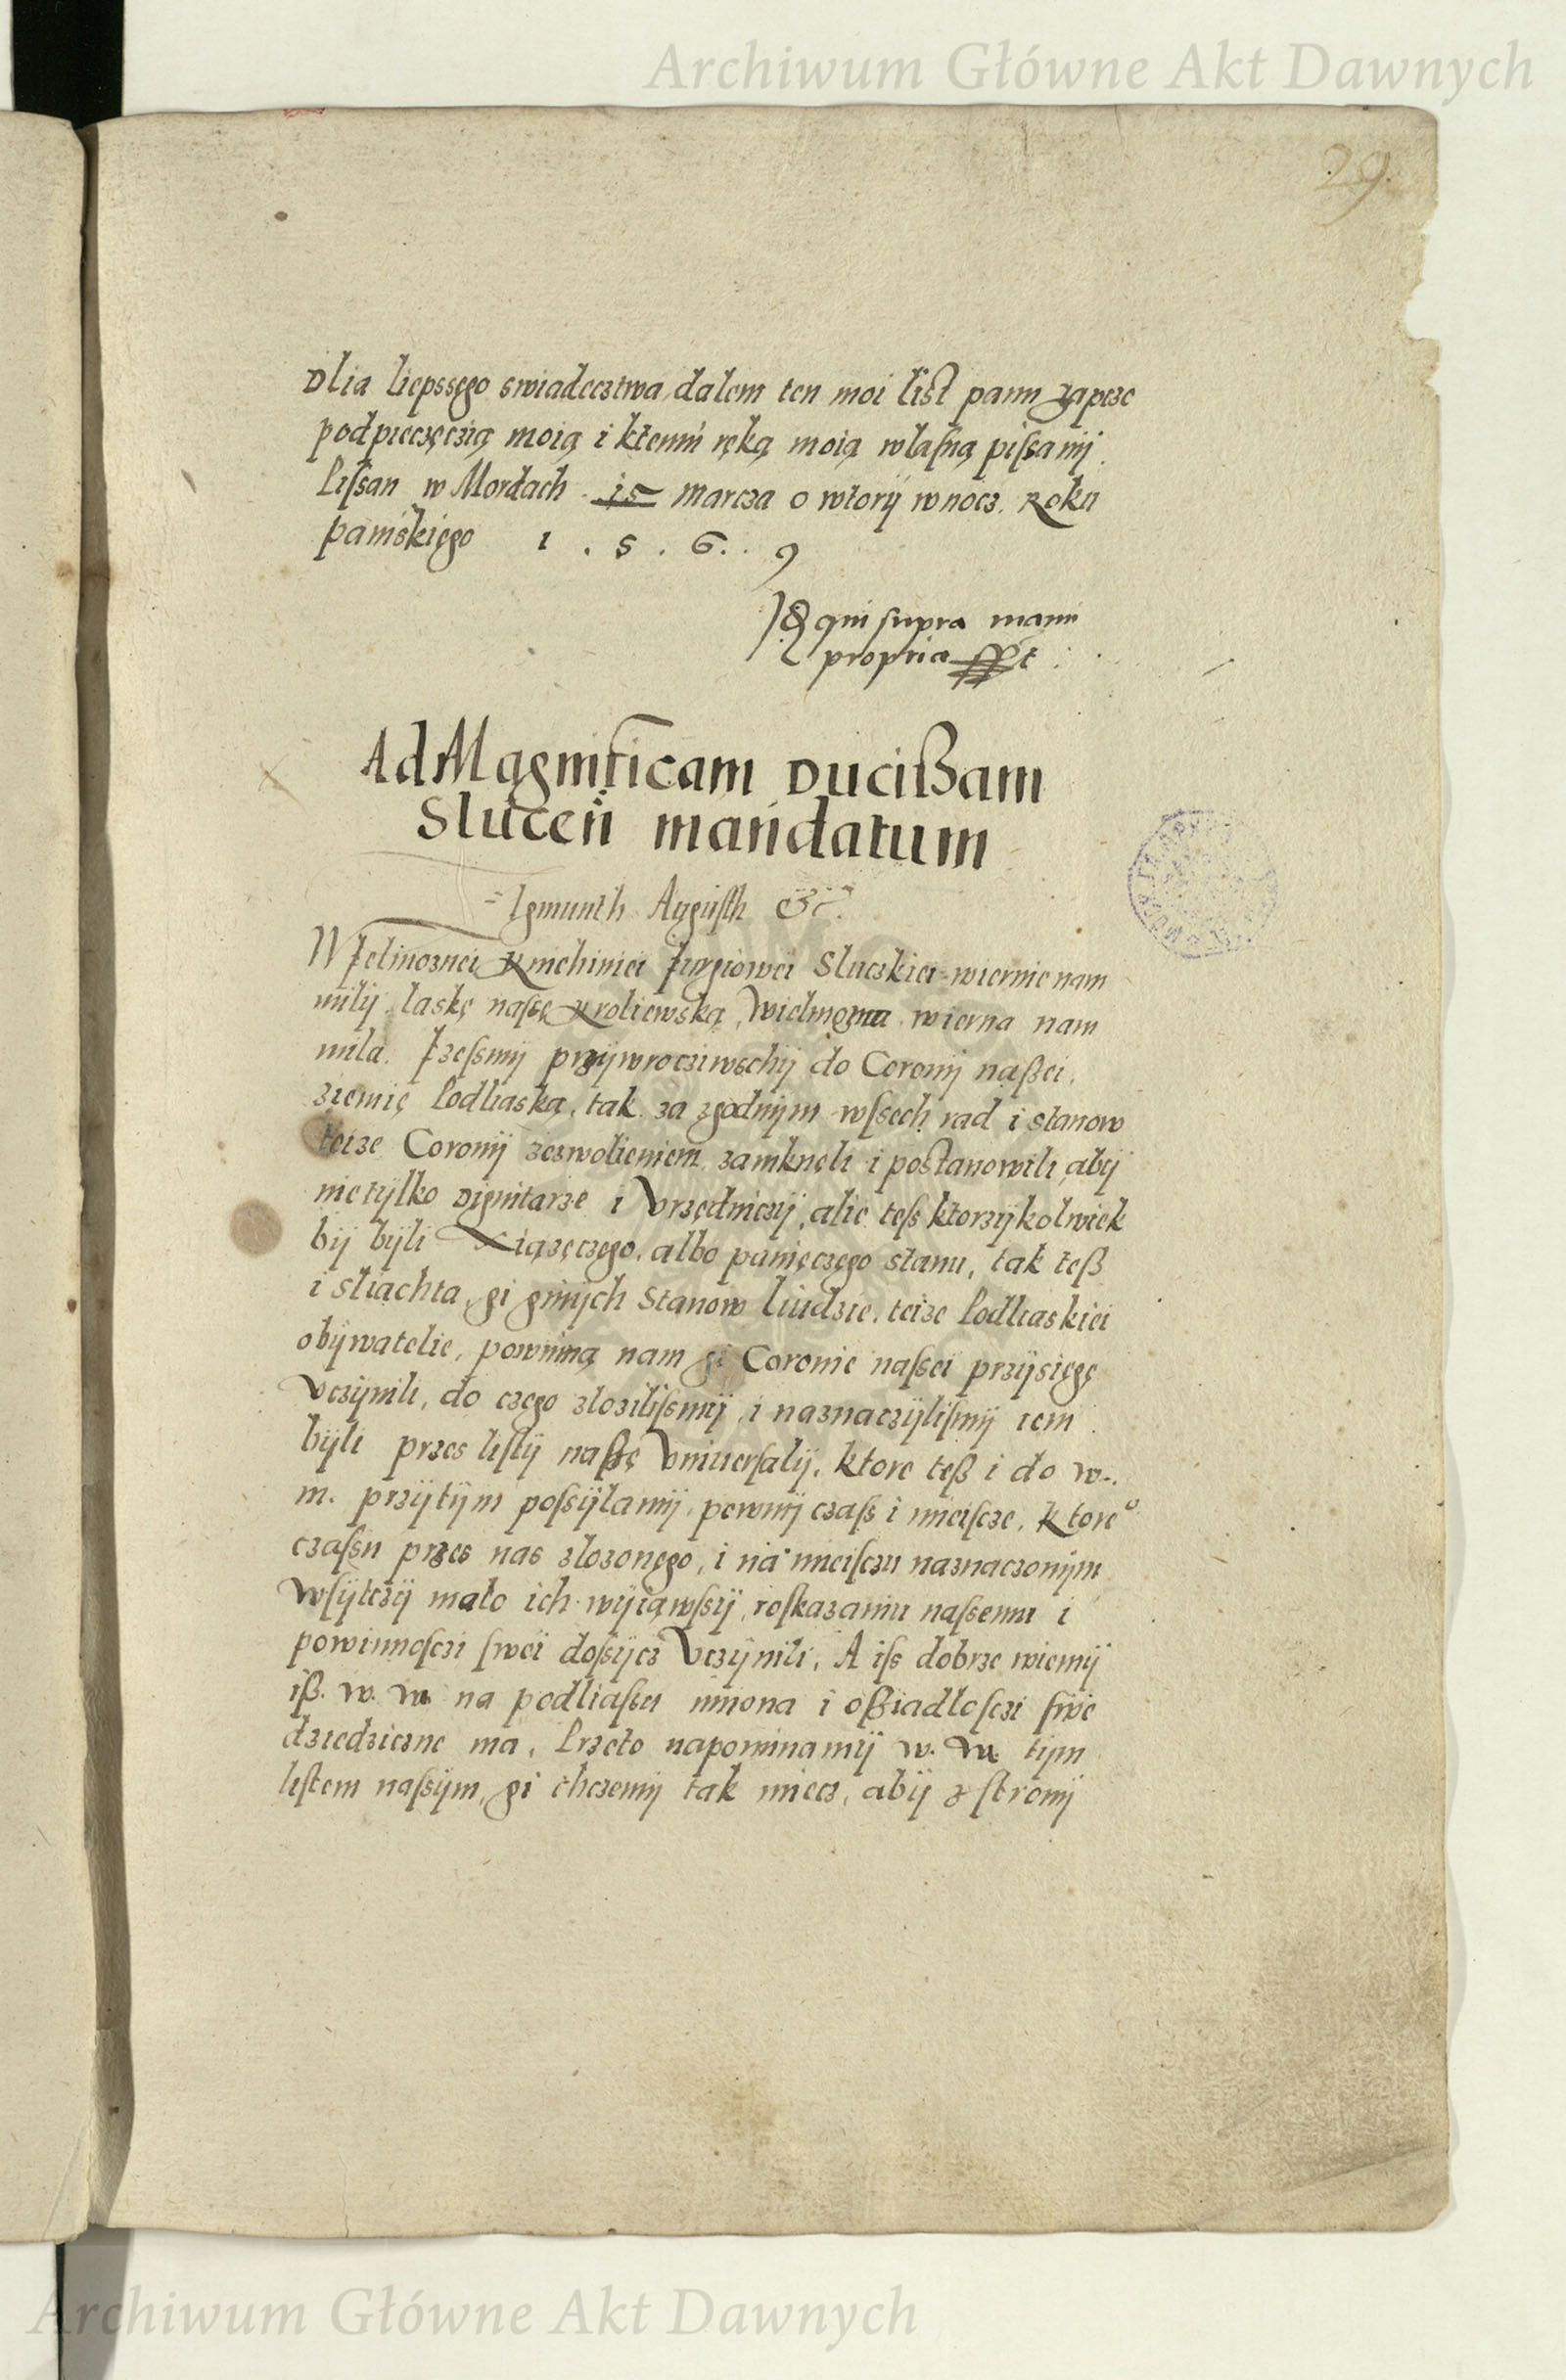 Archiwum Główne Akt Dawnych
29.
Dlia liepssęgo swiadecztwa dalem ten moi list panu
podpieczęczią moią i ktemu ręką moią własną pissanij.
Pissan w Mordach 15 marcza o wtorij wnocz. Roku
panskięgo 1.5.6.9
qui supra manu
propria sspt
Ad Magnificam Ducißam
Slucen̄ mandatum
Igmunth Augusth &c.
Wielmoznei Kniehiniei Jurgiowei Sluczkiei wiernie nam
milij laskę nassę Kroliewską, Wielmozna wierna nam
mila. Izessmij przijwrocziwschij do Coronij naßei,
ziemię Podliaską, tak za zgodnijm wssech rad i stanow
teize Coronij zezwolieniem zamknęli i postanowili, abij
nie tijlko Dignitarze i Vrzędniczij, alie tess ktorzijkolwiek
bij bijli Xiązęczęgo, albo panięczęgo stanu, tak teß
i sliachta, gi ginijch stanow liudzie, teize Podliaskiei
obijwatelie, powinną nam gi Coronie nassei przijsięgę
Vczijnili, do czego zlozilissmij, i naznaczijlismij iem
bijli przes listij naßę Vniuersalij, ktore teß i do w.
m. przijtijm possijlamij, pewnij czass i mieiscze, ktoreº
czassu przes nas zlozonęgo, i na mieisczu naznaczonijm
wsijtczij mało ich wijiąwssij, roskazaniu nassemu i
powinnosczi swei dosijcz Vczijnili, A iss dobrze wiemij
iß. w. m. na podliassu imiona i oßiadlosczi swe
dziedziczne ma, Przeto napominamij w. m. tijm
listem nassijm, gi chczemij tak miecz, abij z stronij
Archiwum Główne Akt Dawnych